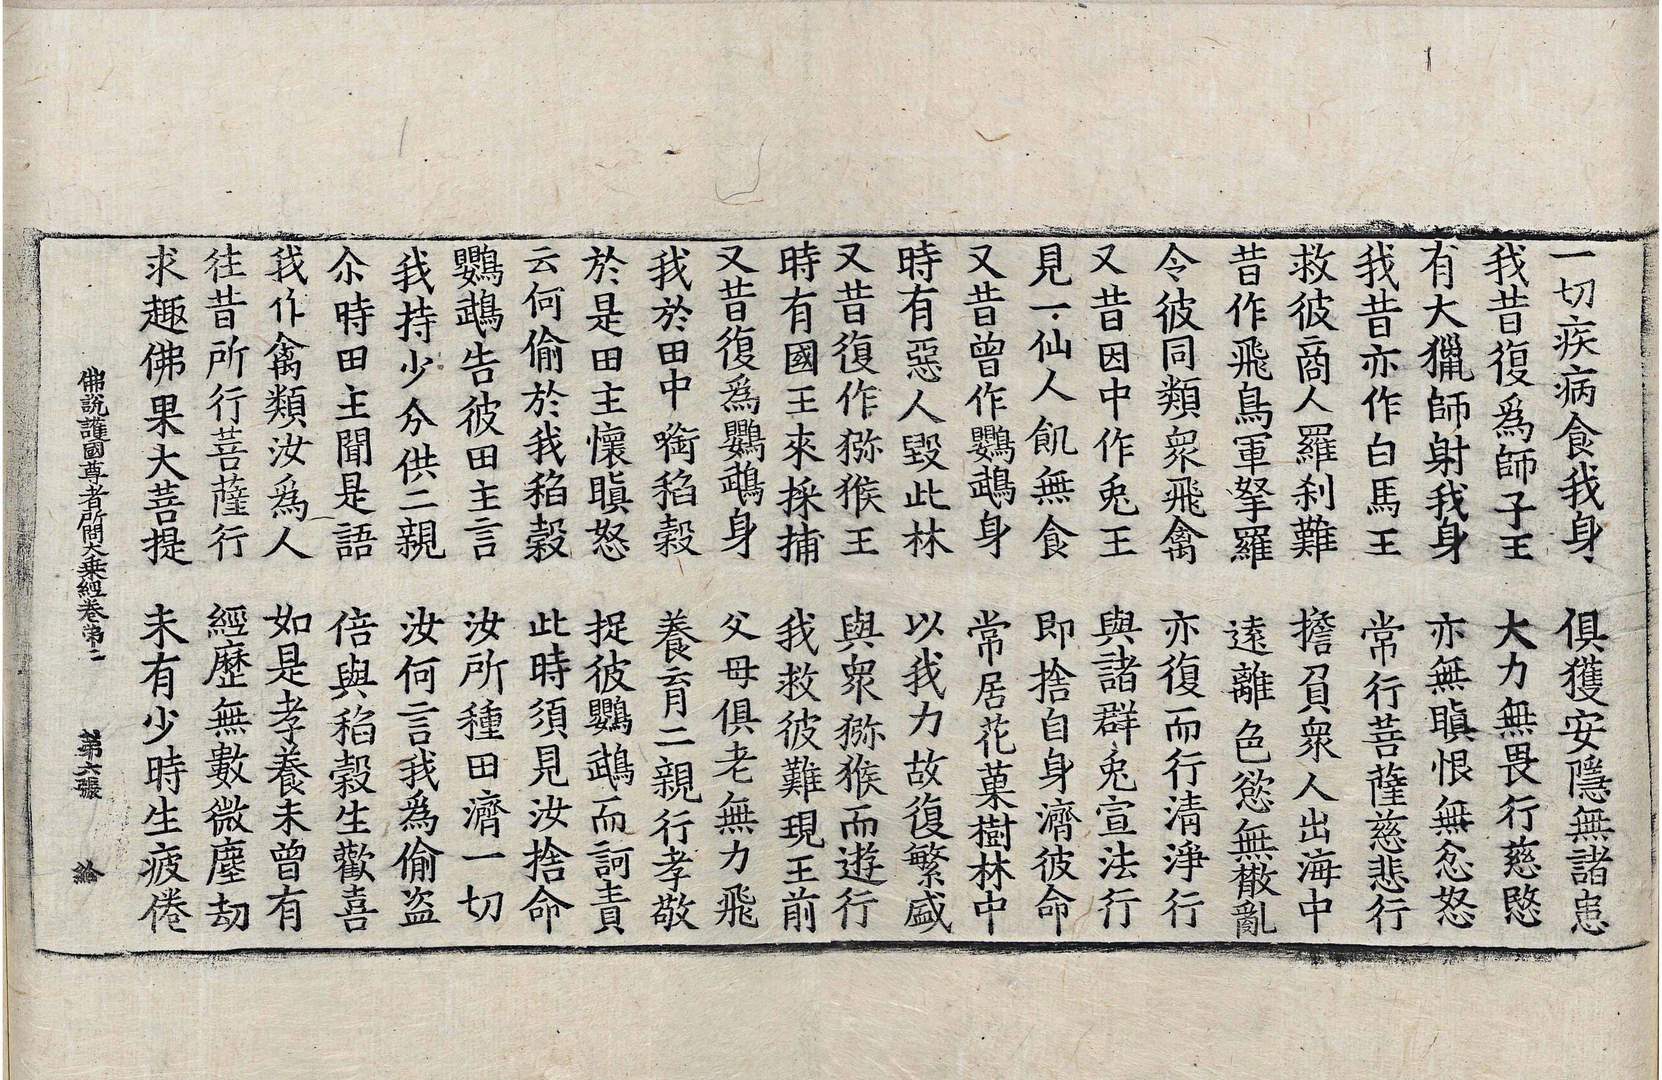 一切疾病食我身　俱獲安隱無諸患
我昔復爲師子王　大力無畏行慈愍
有大獵師射我身　亦無瞋恨無忿怒
我昔亦作白馬王　常行菩薩慈悲行
救彼商人羅刹難　擔負衆人出海中
昔作飛鳥軍拏羅　遠離色慾無散亂
令彼同類衆飛禽　亦復而行清淨行
又昔因中作兎王　與諸群兎宣法行
見一仙人飢無食　即捨自身濟彼命
又昔曾作鸚鵡身　常居花菓樹林中
時有惡人毀此林　以我力故復繁盛
又昔復作猕猴王　與衆猕猴而遊行
時有國王來採捕　我救彼難現王前
又昔復爲鸚鵡身　父母俱老無力飛
我於田中㗸稻穀　養育二親行孝敬
於是田主懷瞋怒　捉彼鸚鵡而訶責
云何偷於我稻穀　此時須見汝捨命
鸚鵡告彼田主言　汝所種田濟一切
我持少分供二親　汝何言我為偷盗
尒時田主聞是語　倍與稻穀生歡喜
我作禽類汝爲人　如是孝養未曾有
往昔所行菩薩行　經歷無數微塵劫
求趣佛果大菩提　未有少時生疲倦
佛說護國尊者所問大乗經卷第二　第六張